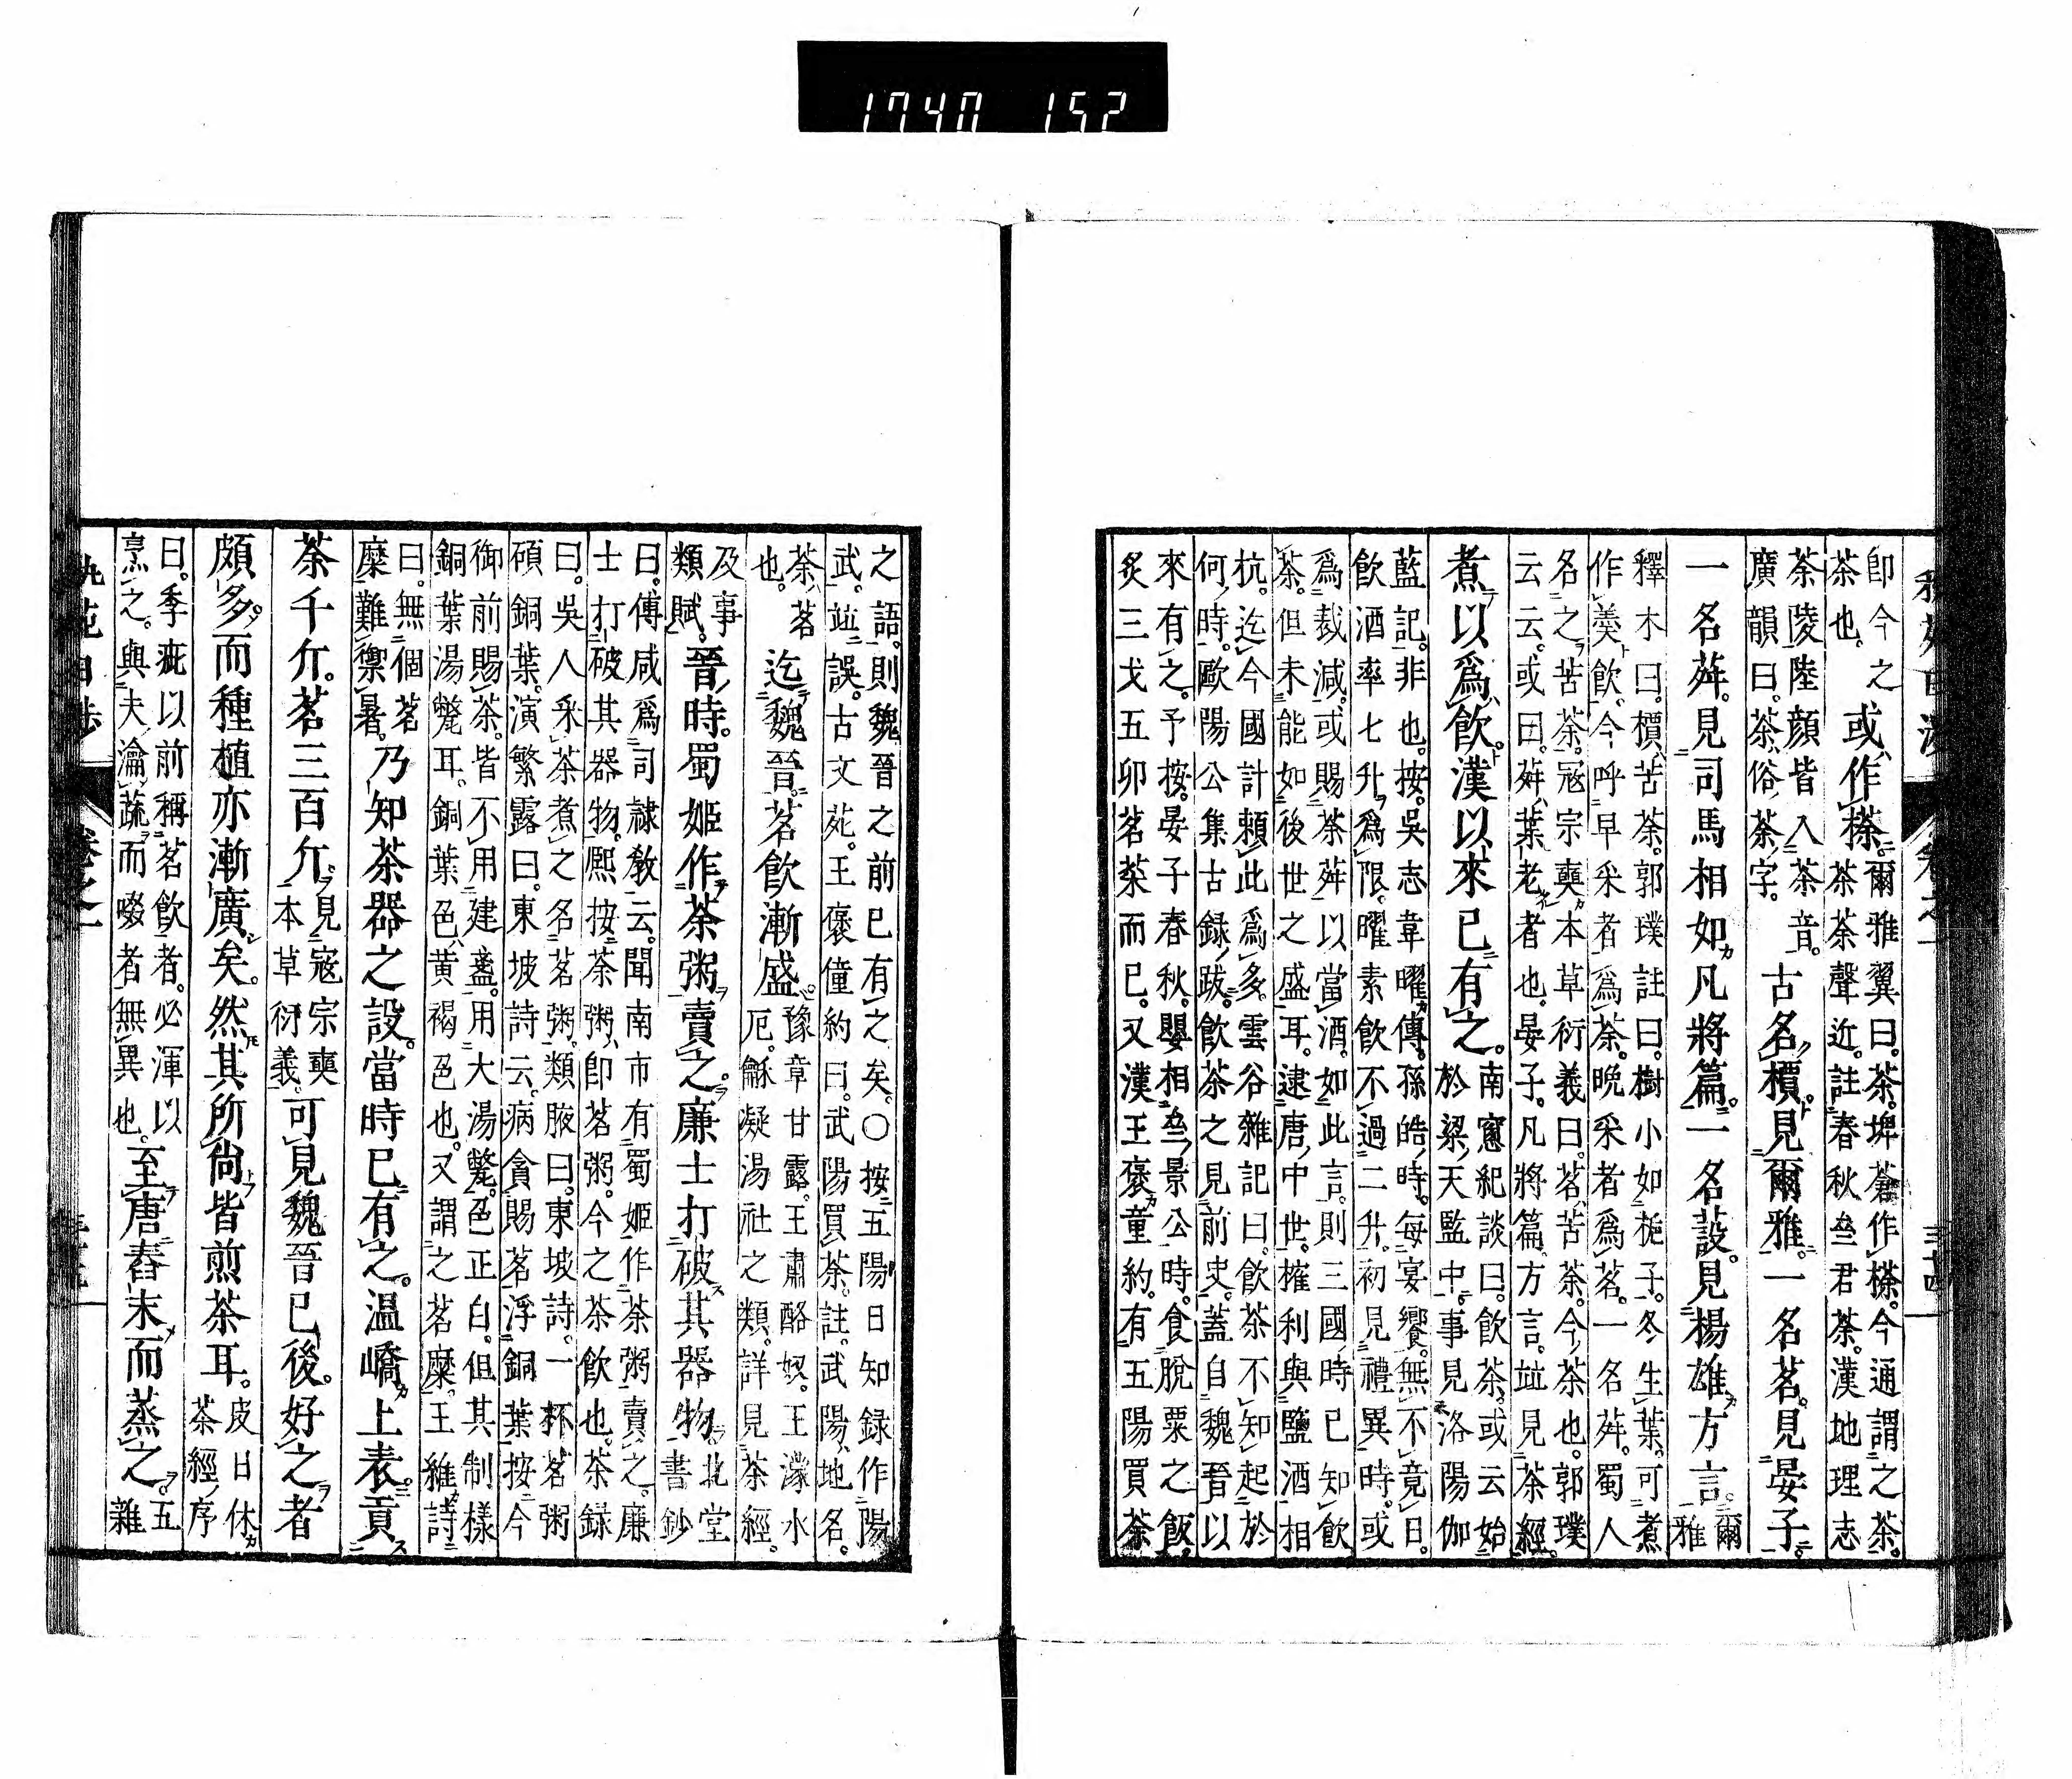 即今之
茶也。
或作㯈。
爾雅翼曰。茶。埤蒼作㯈。今通謂之茶。
茶茶荼聲近。註春秋叁君荼。漢地理志
荼陵陸顔皆入茶音。
廣韻曰。荼俗茶字。
古名檟。見爾雅。一名茗。見晏子。
一名荈。見司馬相如凡將篇。一名蔎。見楊雄方言。
爾
雅
釋木曰。檟苦荼。郭璞註曰。樹小如梔子。冬生葉。可煮
作羮飲。今呼早采者爲茶。晩采者爲茗。一名荈。蜀人
名之苦荼。冦宗奭本草衍義曰。茗苦荼。今茶也。郭璞
云云。或曰。荈葉老者也。晏子。凡將篇。方言。竝見茶經。
煮以爲飲。漢以來已有之。
南窓紀談曰。飲茶。或云始
於梁天監中。事見洛陽伽
藍記。非也。按。吳志韋曜傳。孫皓時。每宴饗。無不竟日。
飲酒率七升爲限。曜素飲不過二升。初見禮異時。或
爲裁減。或賜茶荈以當酒。如此言。則三國時已知飲
茶。但未能如後世之盛耳。逮唐中世。榷利與鹽酒相
抗。迄今國計頼此爲多。雲谷雜記曰。飲茶不知起於
何時。歐陽公集古録跋。飲茶之見前史。蓋自魏晉以
來有之。予按。晏子春秋。嬰相叁景公時。食脫粟之飯。
炙三戈五卯茗菜而已。又漢王褒童約。有五陽買茶
之語。則魏晉之前已有之矣。〇按五陽日知録作陽
武。竝誤。古文苑。王褒僮約曰。武陽買茶。註。武陽地名。
茶茗
也。
迄魏晉。茗飲漸盛。
豫章甘露。王肅酪奴。王濛水
厄。龢凝湯社之類。詳見茶經。
及事
類賦。
晉時。蜀姬作茶粥賣之。廉士打破其器物。
北堂
書鈔
曰。傅咸爲司隷教云。聞南市有蜀姬作茶粥賣之。廉
士打破其器物。熙按茶粥。即茗粥。今之茶飲也。茶録
曰。吳人采茶煮之名茗粥。類腋曰。東坡詩。一杯茗粥
碩銅葉。演繁露曰。東坡詩云。病貪賜茗浮銅葉。按今
御前賜茶。皆不用建盞。用大湯氅。色正白。但其制樣
銅葉湯氅耳。銅葉色黄褐色也。又謂之茗糜。王維詩
曰。無個茗
糜難禦暑。
乃知茶器之設。當時已有之。温嶠上表。貢
茶千斤。茗三百斤。
見寇宗奭
本草衍義。
可見魏晉已後。好之者
頗多。而種植亦漸廣矣。然其所尙皆煎茶耳。
皮日休
茶經序
曰。季疵以前稱茗飲者。必渾以
烹之。與夫瀹蔬而啜者無異也。
至唐舂末而蒸之。
五
雜
卷之一